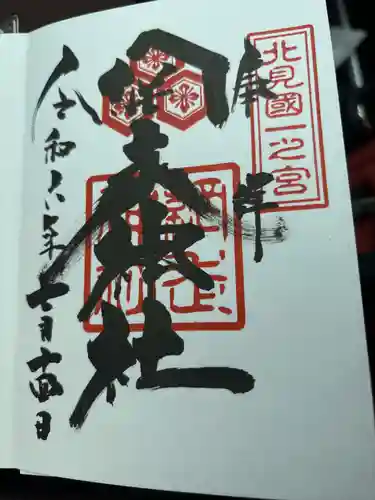 北見國一之宮
奉拝
網走神社
網走神社
令和六年七月十四日